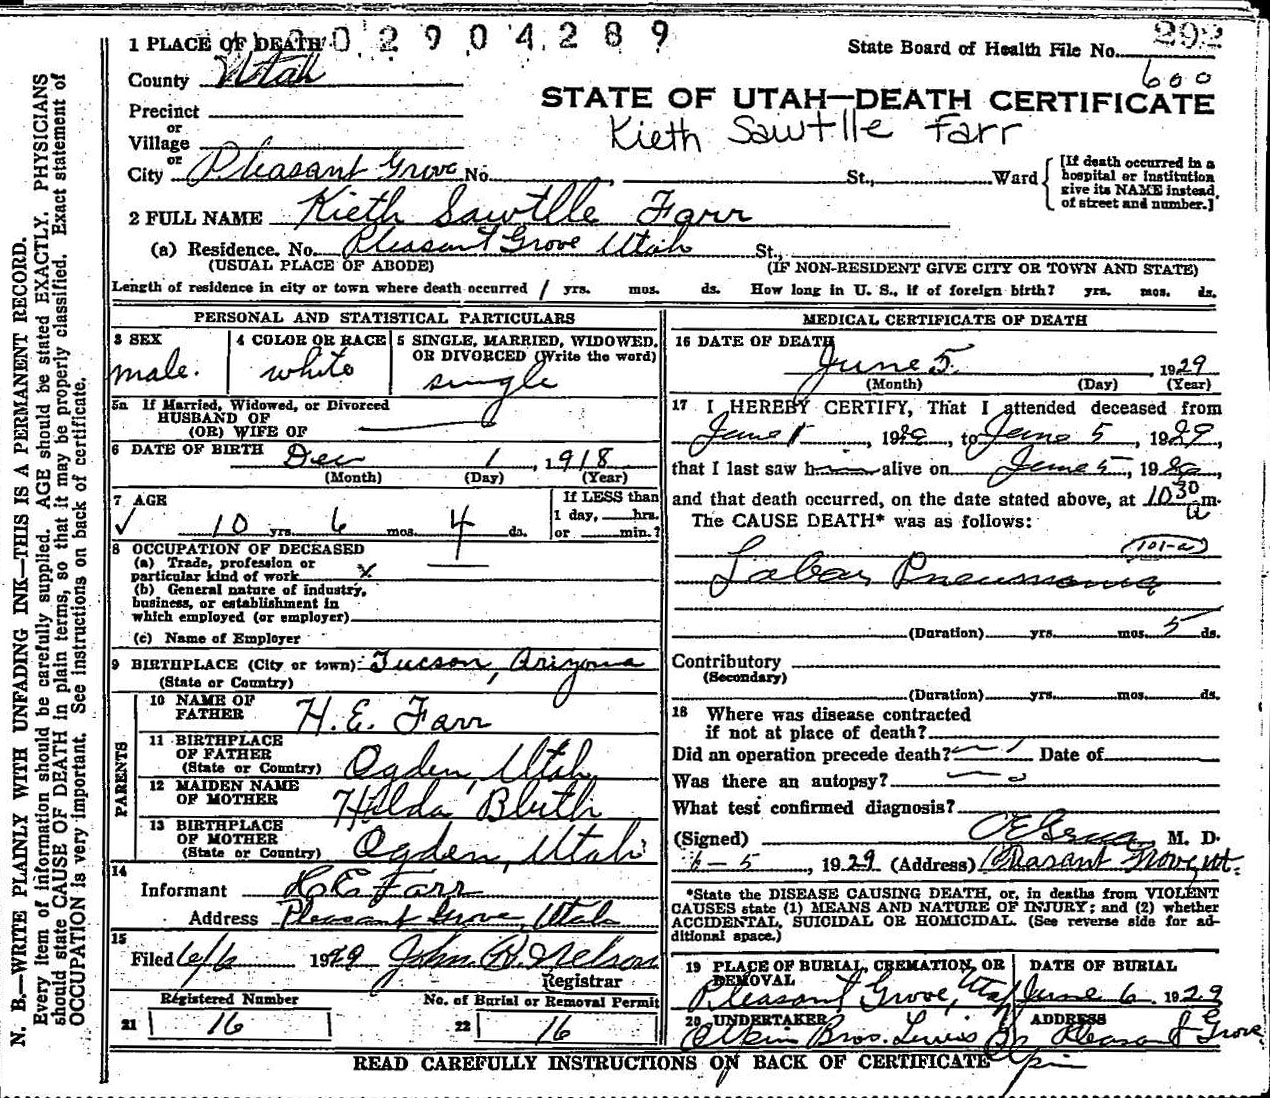 2904289
1 PLACE OF DEATH
State Board of Health File No. 292
County Utah
600
STATE OF UTAH—DEATH CERTIFICATE
Precinct
Kieth Sawtlle Farr
or
Village
or
City Pleasant Grove No. , St., Ward
[If death occurred in a
hospital or institution
give its NAME instead
of street and number.]
2 FULL NAME Kieth Sawtlle Farr
(a) Residence. No. Pleasant Grove Utah St.,
(USUAL PLACE OF ABODE) (IF NON-RESIDENT GIVE CITY OR TOWN AND STATE)
Length of residence in city or town where death occurred 1 yrs. mos. ds. How long in U. S., if of foreign birth? yrs. mos. ds.
PERSONAL AND STATISTICAL PARTICULARS
3 SEX
male.
4 COLOR OR RACE
white
5 SINGLE, MARRIED, WIDOWED,
OR DIVORCED (Write the word)
single
5a If Married, Widowed, or Divorced
HUSBAND OF
(OR) WIFE OF
6 DATE OF BIRTH Dec 1, 1918
(Month) (Day) (Year)
7 AGE
10 yrs. 6 mos. 4 ds.
If LESS than
1 day, hrs.
or min.?
8 OCCUPATION OF DECEASED
(a) Trade, profession or
particular kind of work x
(b) General nature of industry,
business, or establishment in
which employed (or employer)
(c) Name of Employer
9 BIRTHPLACE (City or town) Tucson, Arizona
(State or Country)
PARENTS
10 NAME OF
FATHER H. E. Farr
11 BIRTHPLACE
OF FATHER
(State or Country) Ogden, Utah
12 MAIDEN NAME
OF MOTHER Hilda Bluth
13 BIRTHPLACE
OF MOTHER
(State or Country) Ogden, Utah
14
Informant H E Farr
Address Pleasant Grove, Utah
15
Filed 6/6 1929 John B. Nelson
Registrar
Registered Number
21 16
No. of Burial or Removal Permit
22 16
MEDICAL CERTIFICATE OF DEATH
16 DATE OF DEATH
June 5. , 1929
(Month) (Day) (Year)
17 I HEREBY CERTIFY, That I attended deceased from
June 1, 1929, to June 5, 1929,
that I last saw h alive on June 5, 1929,
and that death occurred, on the date stated above, at 10 30 a m.
The CAUSE DEATH* was as follows:
101-a
Lobar Pneumonia
(Duration) yrs. mos. 5 ds.
Contributory
(Secondary)
(Duration) yrs. mos. ds.
18 Where was disease contracted
if not at place of death?
Did an operation precede death? Date of
Was there an autopsy?
What test confirmed diagnosis?
(Signed) M. D.
6-5, 1929 (Address) Pleasant Grove, Ut.
*State the DISEASE CAUSING DEATH, or, in deaths from VIOLENT
CAUSES state (1) MEANS AND NATURE OF INJURY; and (2) whether
ACCIDENTAL, SUICIDAL OR HOMICIDAL. (See reverse side for ad-
ditional space.)
19 PLACE OF BURIAL, CREMATION, OR
REMOVAL
Pleasant Grove, Utah
DATE OF BURIAL
June 6, 1929
20 UNDERTAKER
Bros.
ADDRESS
Pleasant Grove
READ CAREFULLY INSTRUCTIONS ON BACK OF CERTIFICATE
N. B.—WRITE PLAINLY WITH UNFADING INK—THIS IS A PERMANENT RECORD.
Every item of information should be carefully supplied. AGE should be stated EXACTLY. PHYSICIANS
should state CAUSE OF DEATH in plain terms, so that it may be properly classified. Exact statement of
OCCUPATION is very important. See instructions on back of certificate.